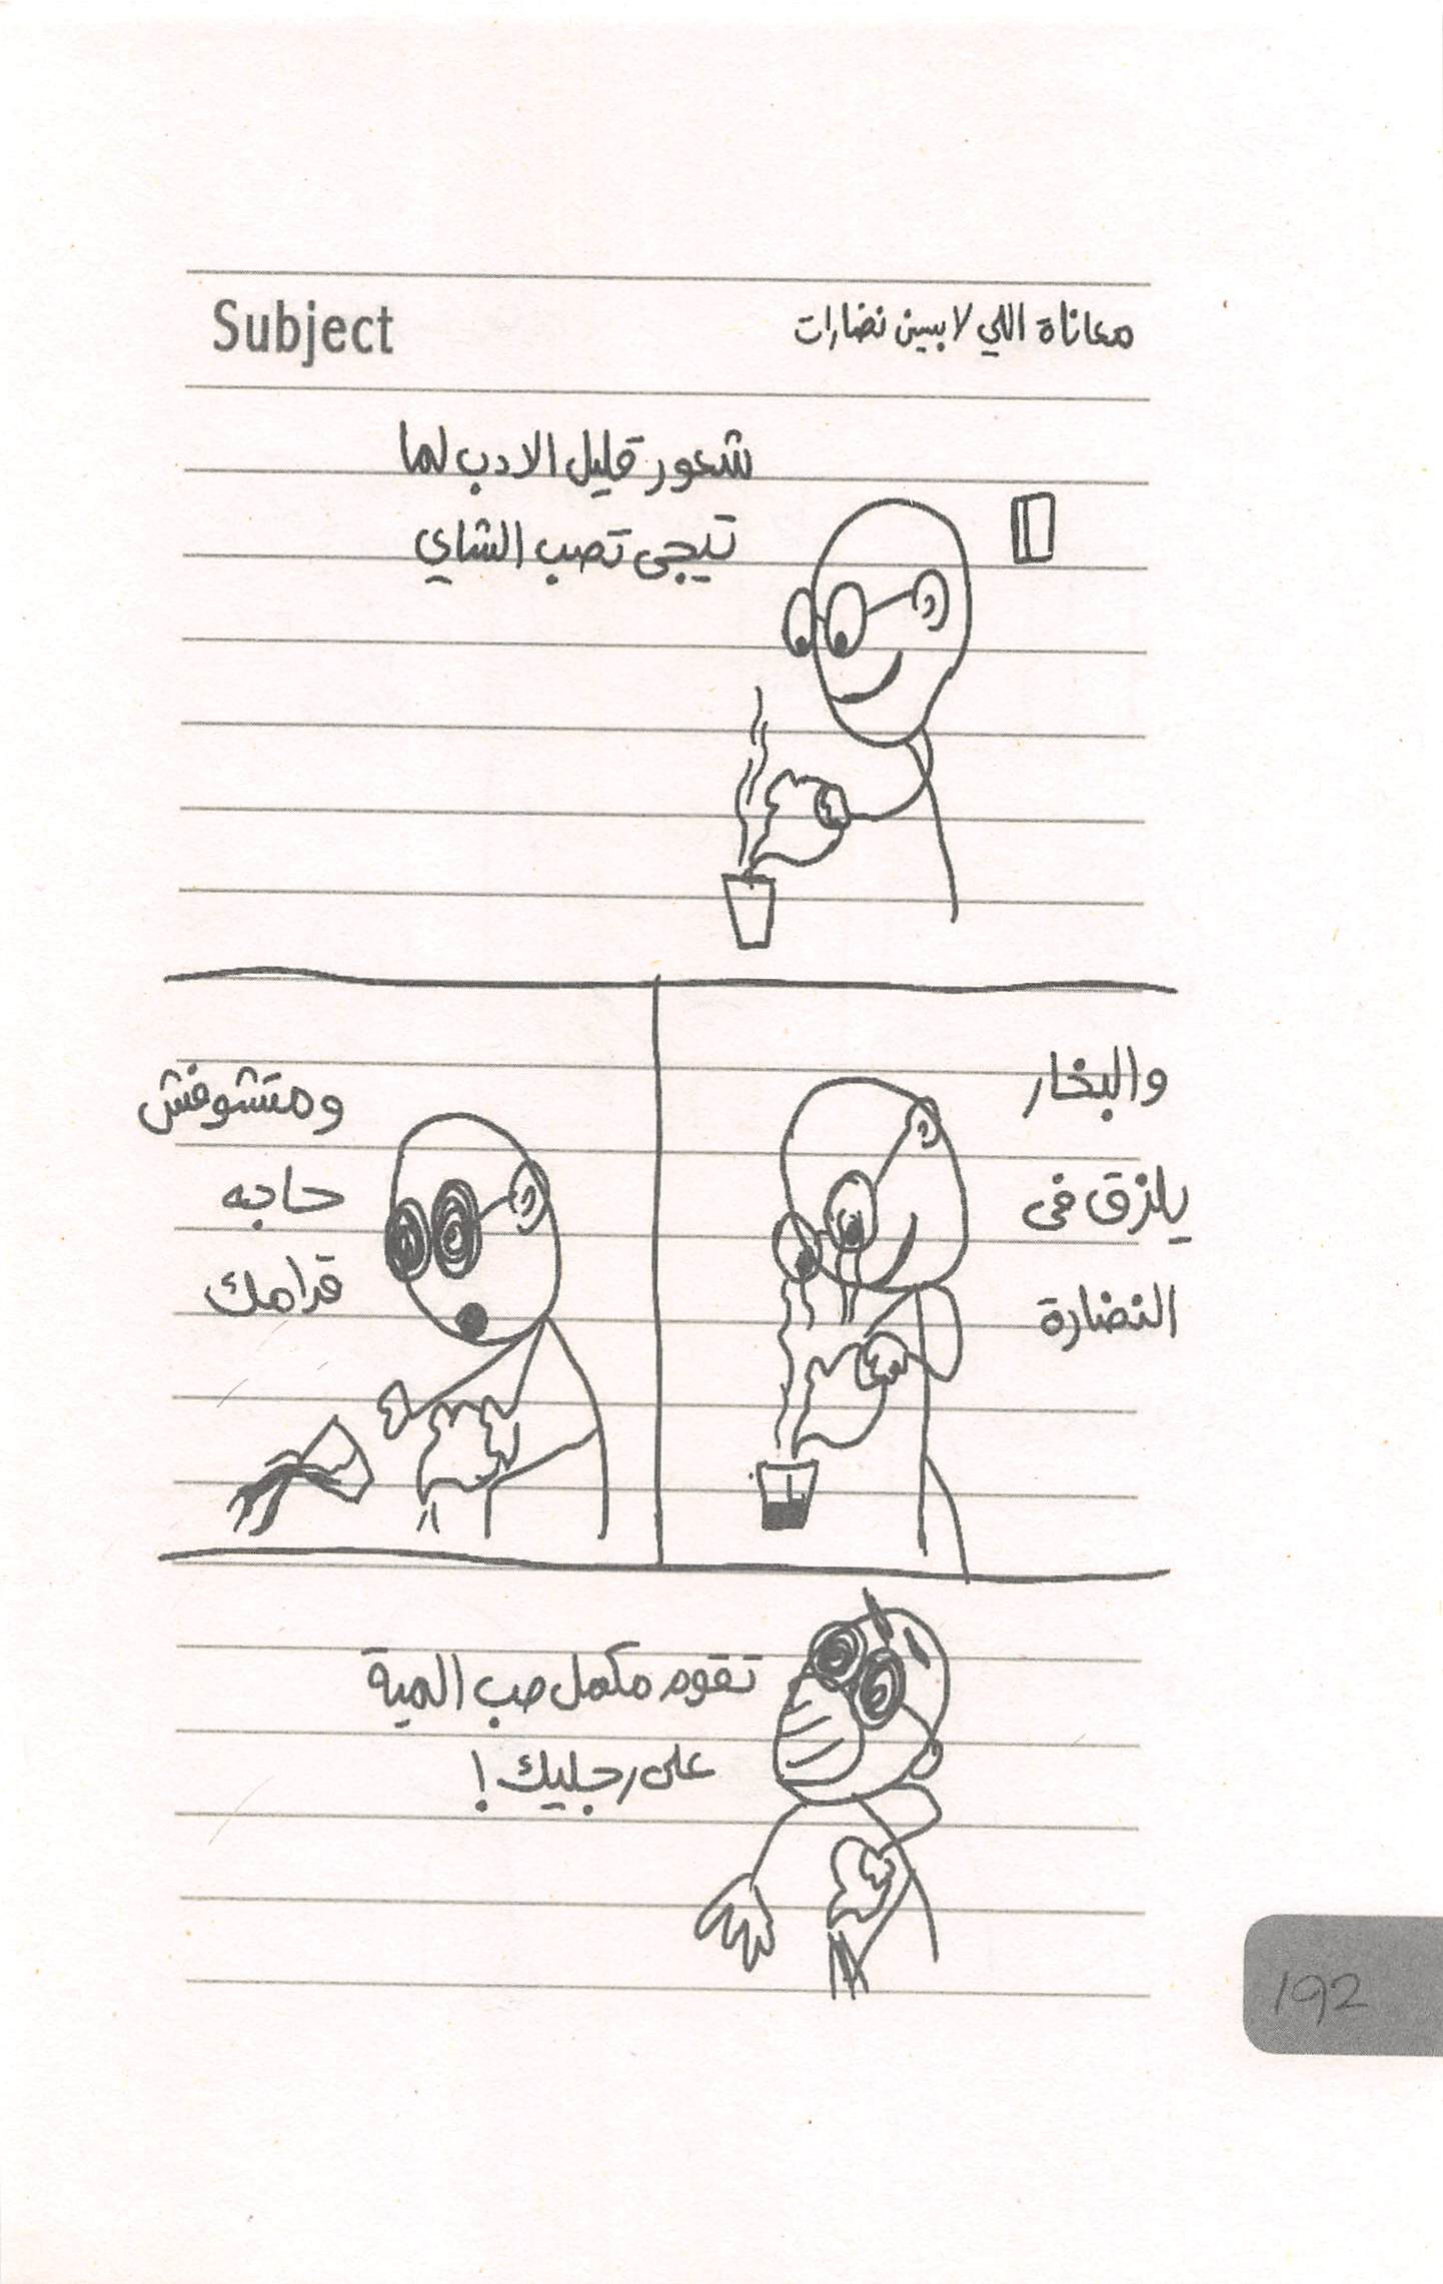 Subject
معاناة اللي لابسين نضارات
شعور قليل الادب لما
تيجى تصب الشاي
والبخار
يلزق فى
النضارة
ومتشوفش
حاجه
قدامك
تقوم مكمل صب المية
على رجليك !
192